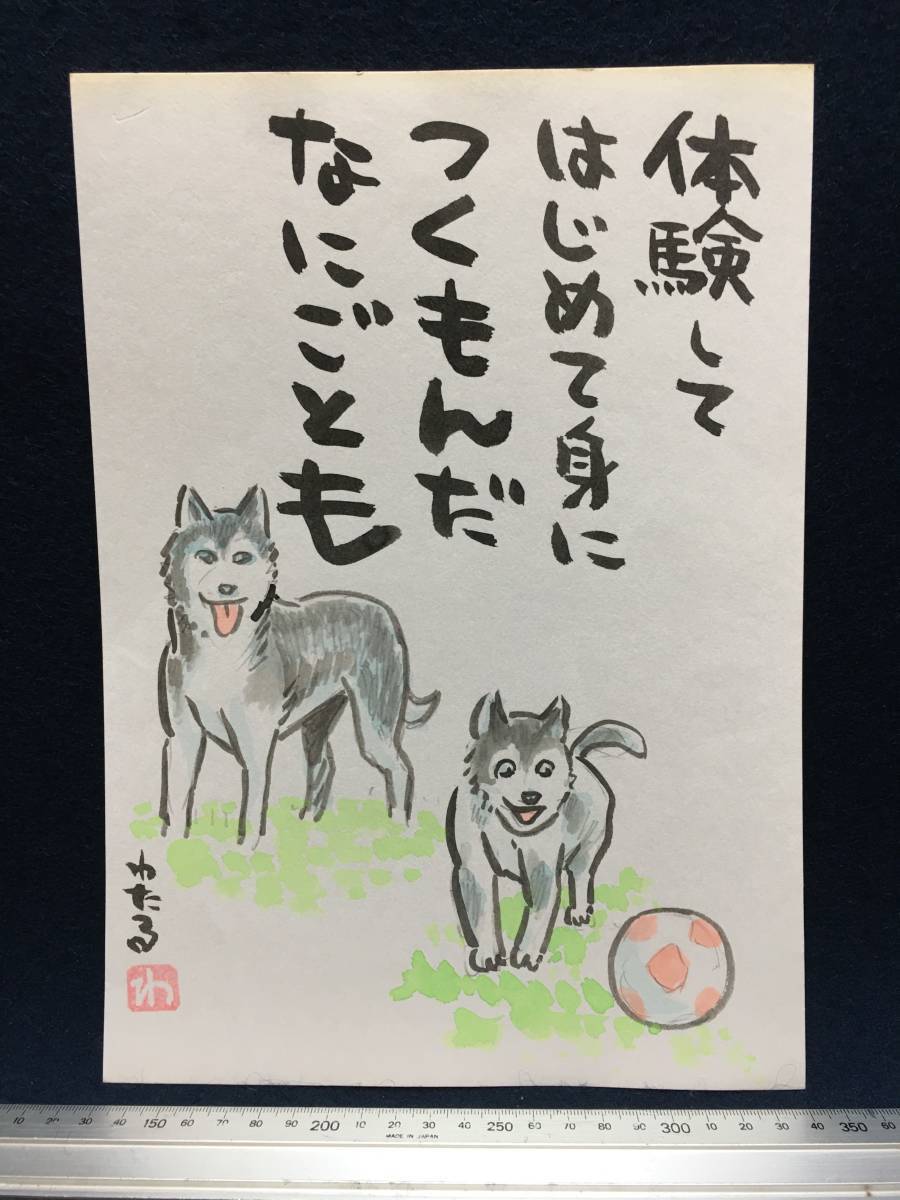 体験して
はじめて身に
つくもんだ
なにごとも
わたる
わ
10 20 30 40 150 60 70 80 90 200 10 20 30 40 250 60 70 80 90 300 10 20 30 40 350 60
MADE IN JAPAN